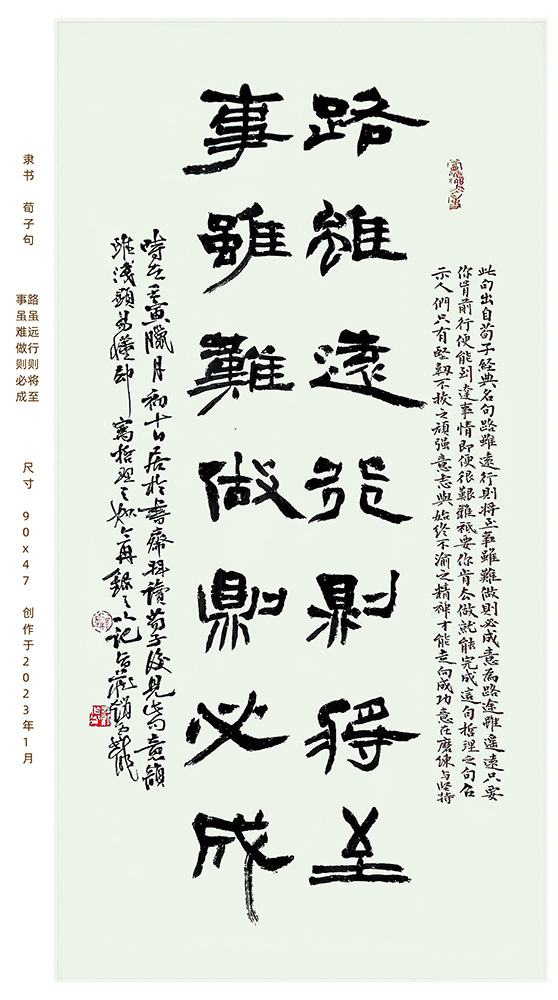 此句出自荀子經典名句路雖遠行則将至事雖難做則必成意為路途雖遥遠只要
你肯前行便能到達事情即便很艱難祗要你肯去做就能完成這句哲理之句啓
示人們只有堅韌不拔之頑强意志與始終不渝之精神才能走向成功意在磨煉与坚持
路雖遠行則將至
事雖難做則必成
時在壬寅臘月初十日居於書齋拜讀荀子後見此句意韻
雖淺顯易懂却寓哲理之
隶书 荀子句
路虽远行则将至
事虽难做则必成
尺寸 90x47 创作于2023年1月